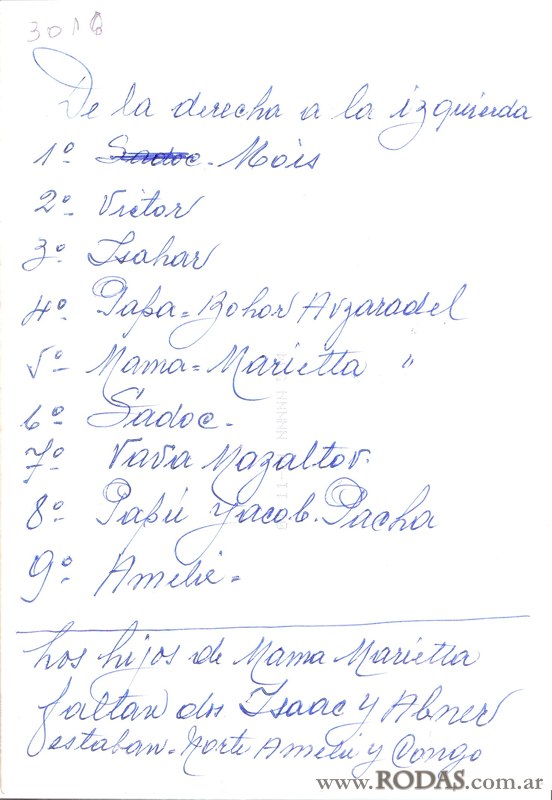 3018
De la derecha a la izquierda
1º Sadoc - Mois
2º - Victor
3º - Isahar
4º - Papa = Bohor Avzaradel
5º - Mama = Marietta "
6º - Sadoc -
7º - Vava Mazaltov.
8º - Papú Yacob. Pacha
9º - Amelie -
Los hijos de Mama Marietta
faltan dos Isaac y Abner
estaban - Norte Ameli y Congo
www.RODAS.com.ar